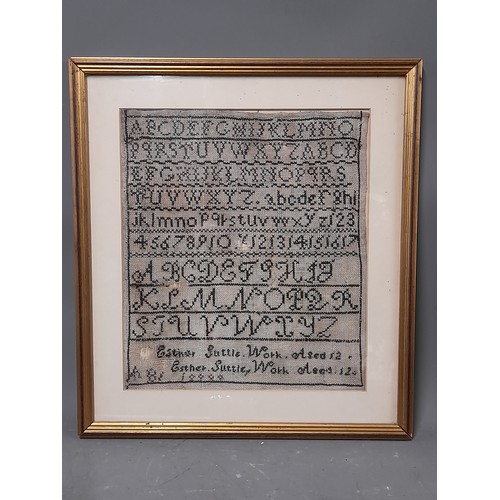 ABCDEFGHIJKLMNO
PQRSTUVWXYZABCD
EFGHIJKLMNOPQRS
TUVWXYZ. abcdefghi
jklmnopqrstuvwxyz123
4567891011121314151617
ABCDEFGHIJ
KLMNOPQR
STUVWXYZ
Esther Suttle Work. Aged 12.
Esther. Suttle, Work Aged. 12.